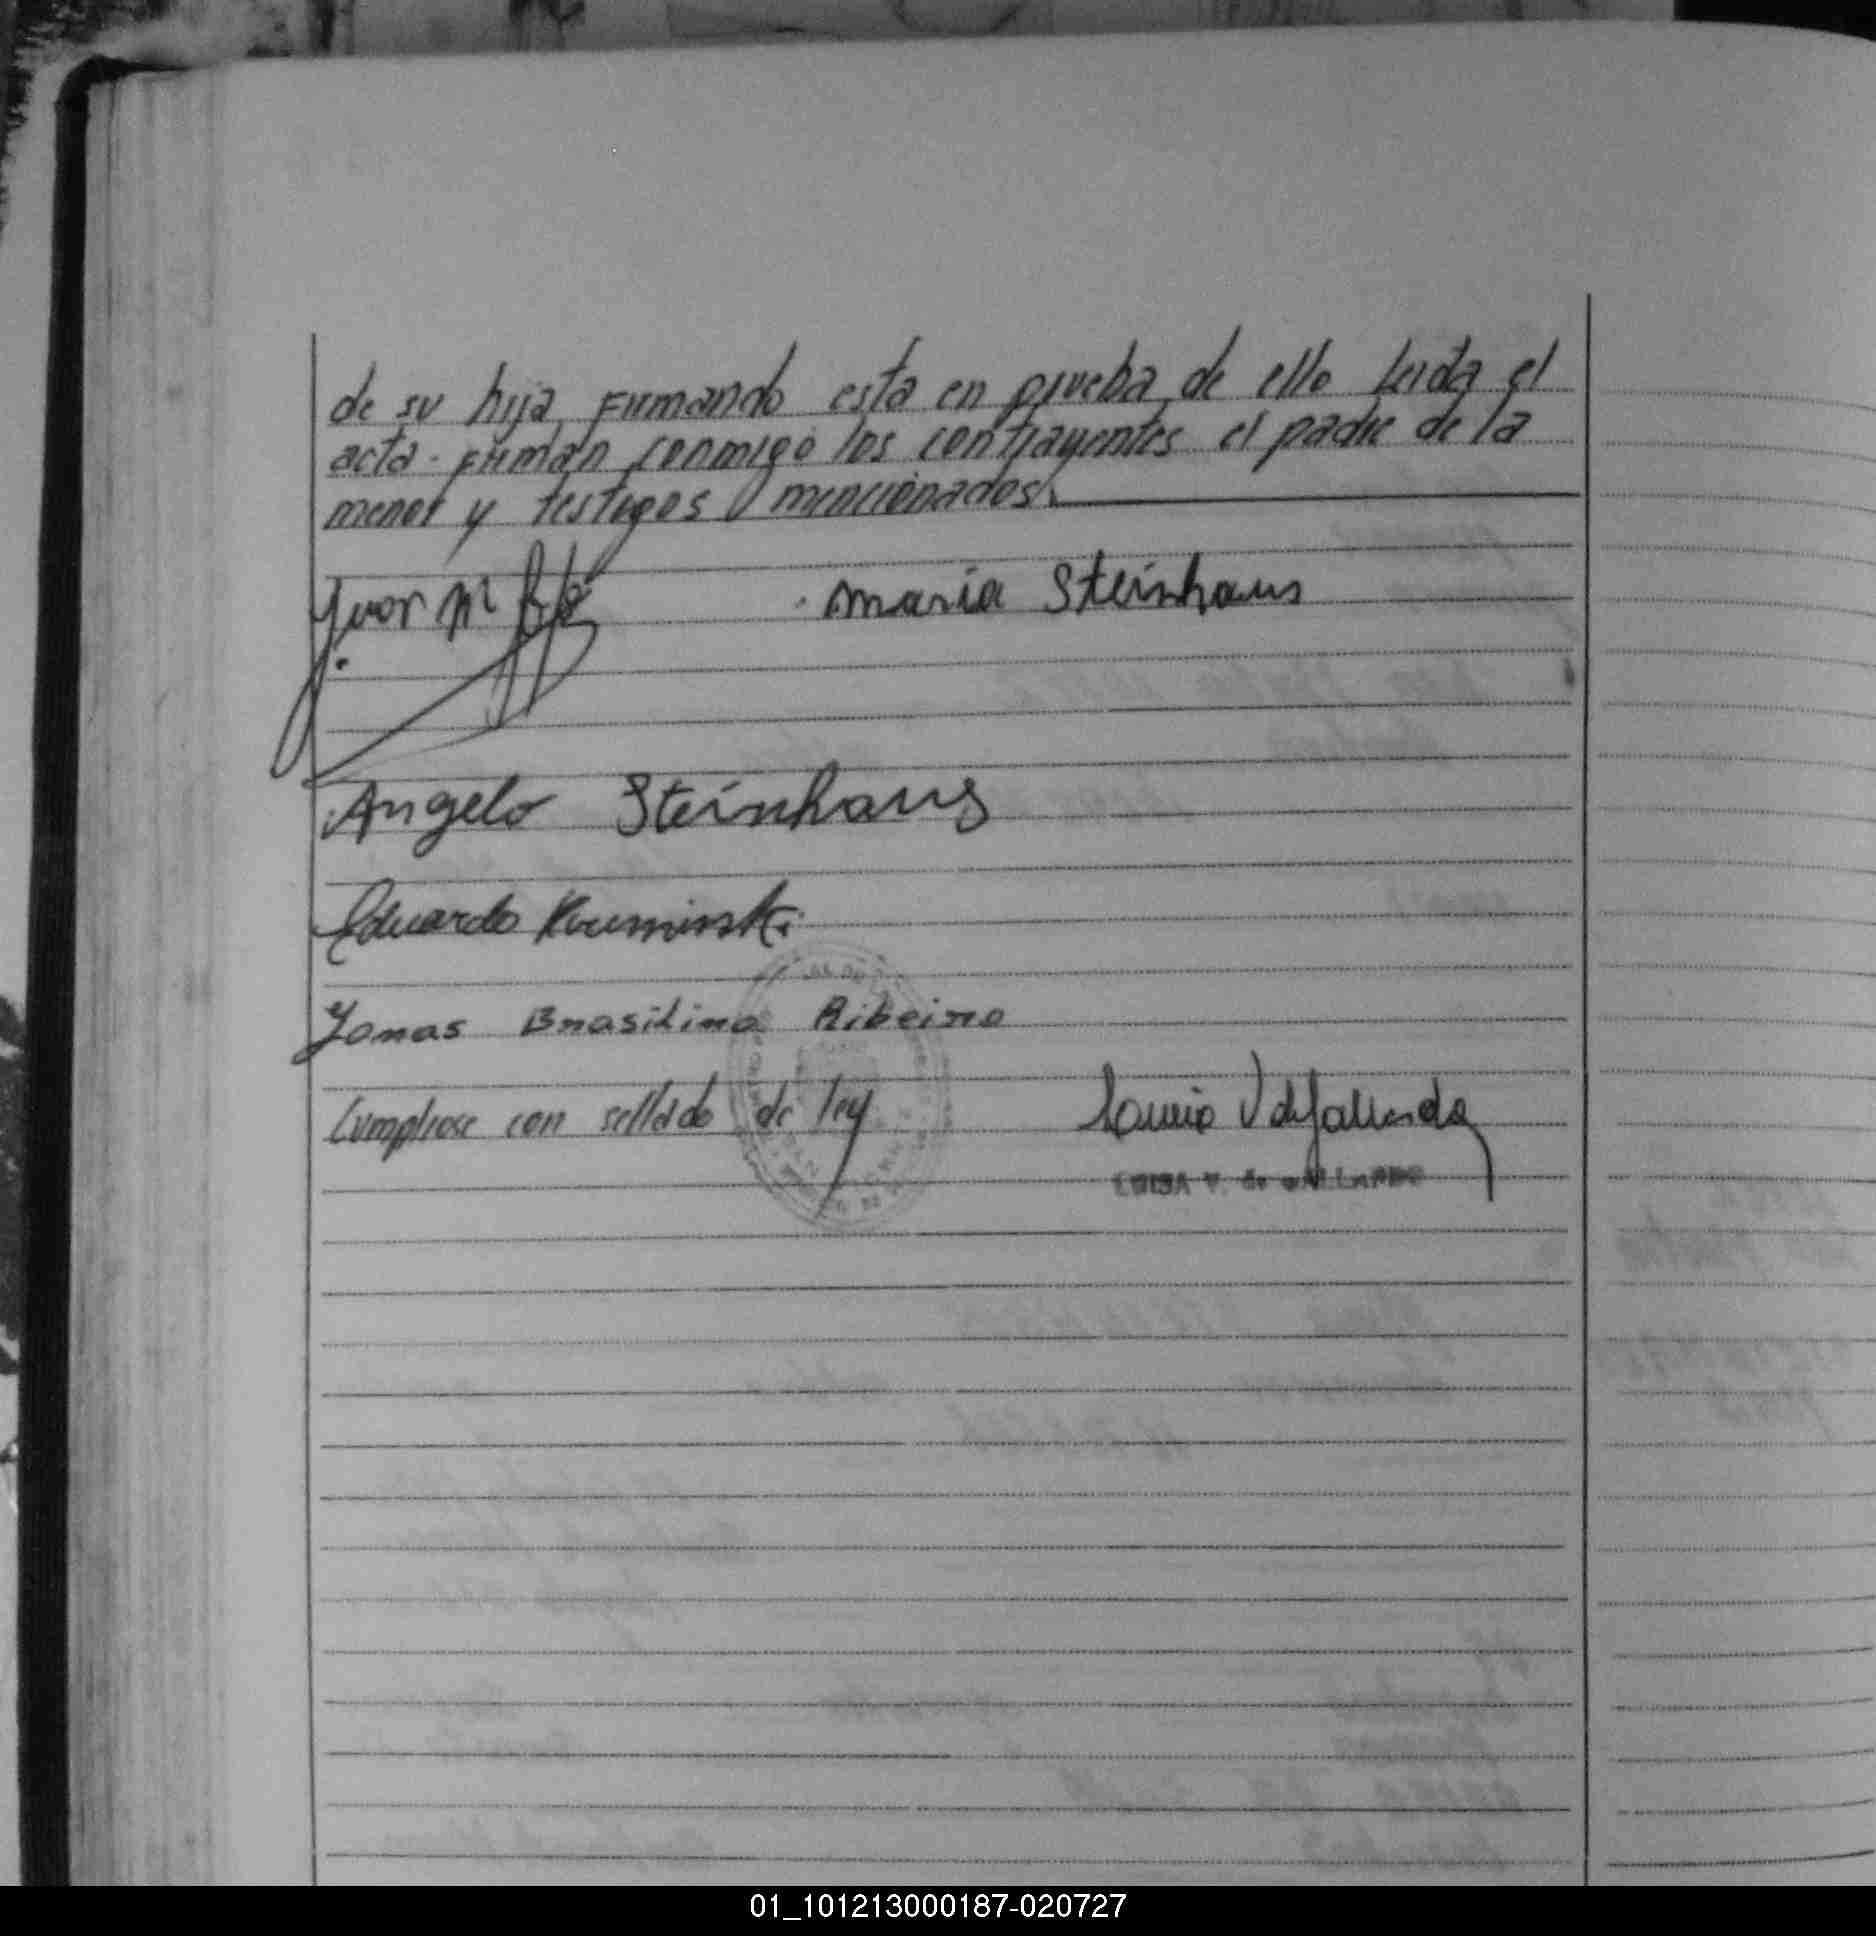 de su hija, Firmando esta en prueba de ello leida el
acta. Firman conmigo los contrayentes el padre de la
menor y testigos mencionados.
maria Steinhaus
Angelo Steinhaus
Eduardo
Jonas Brasilino Ribeiro
Cumpliose con sellado de ley
LUISA V. de
01_101213000187-020727